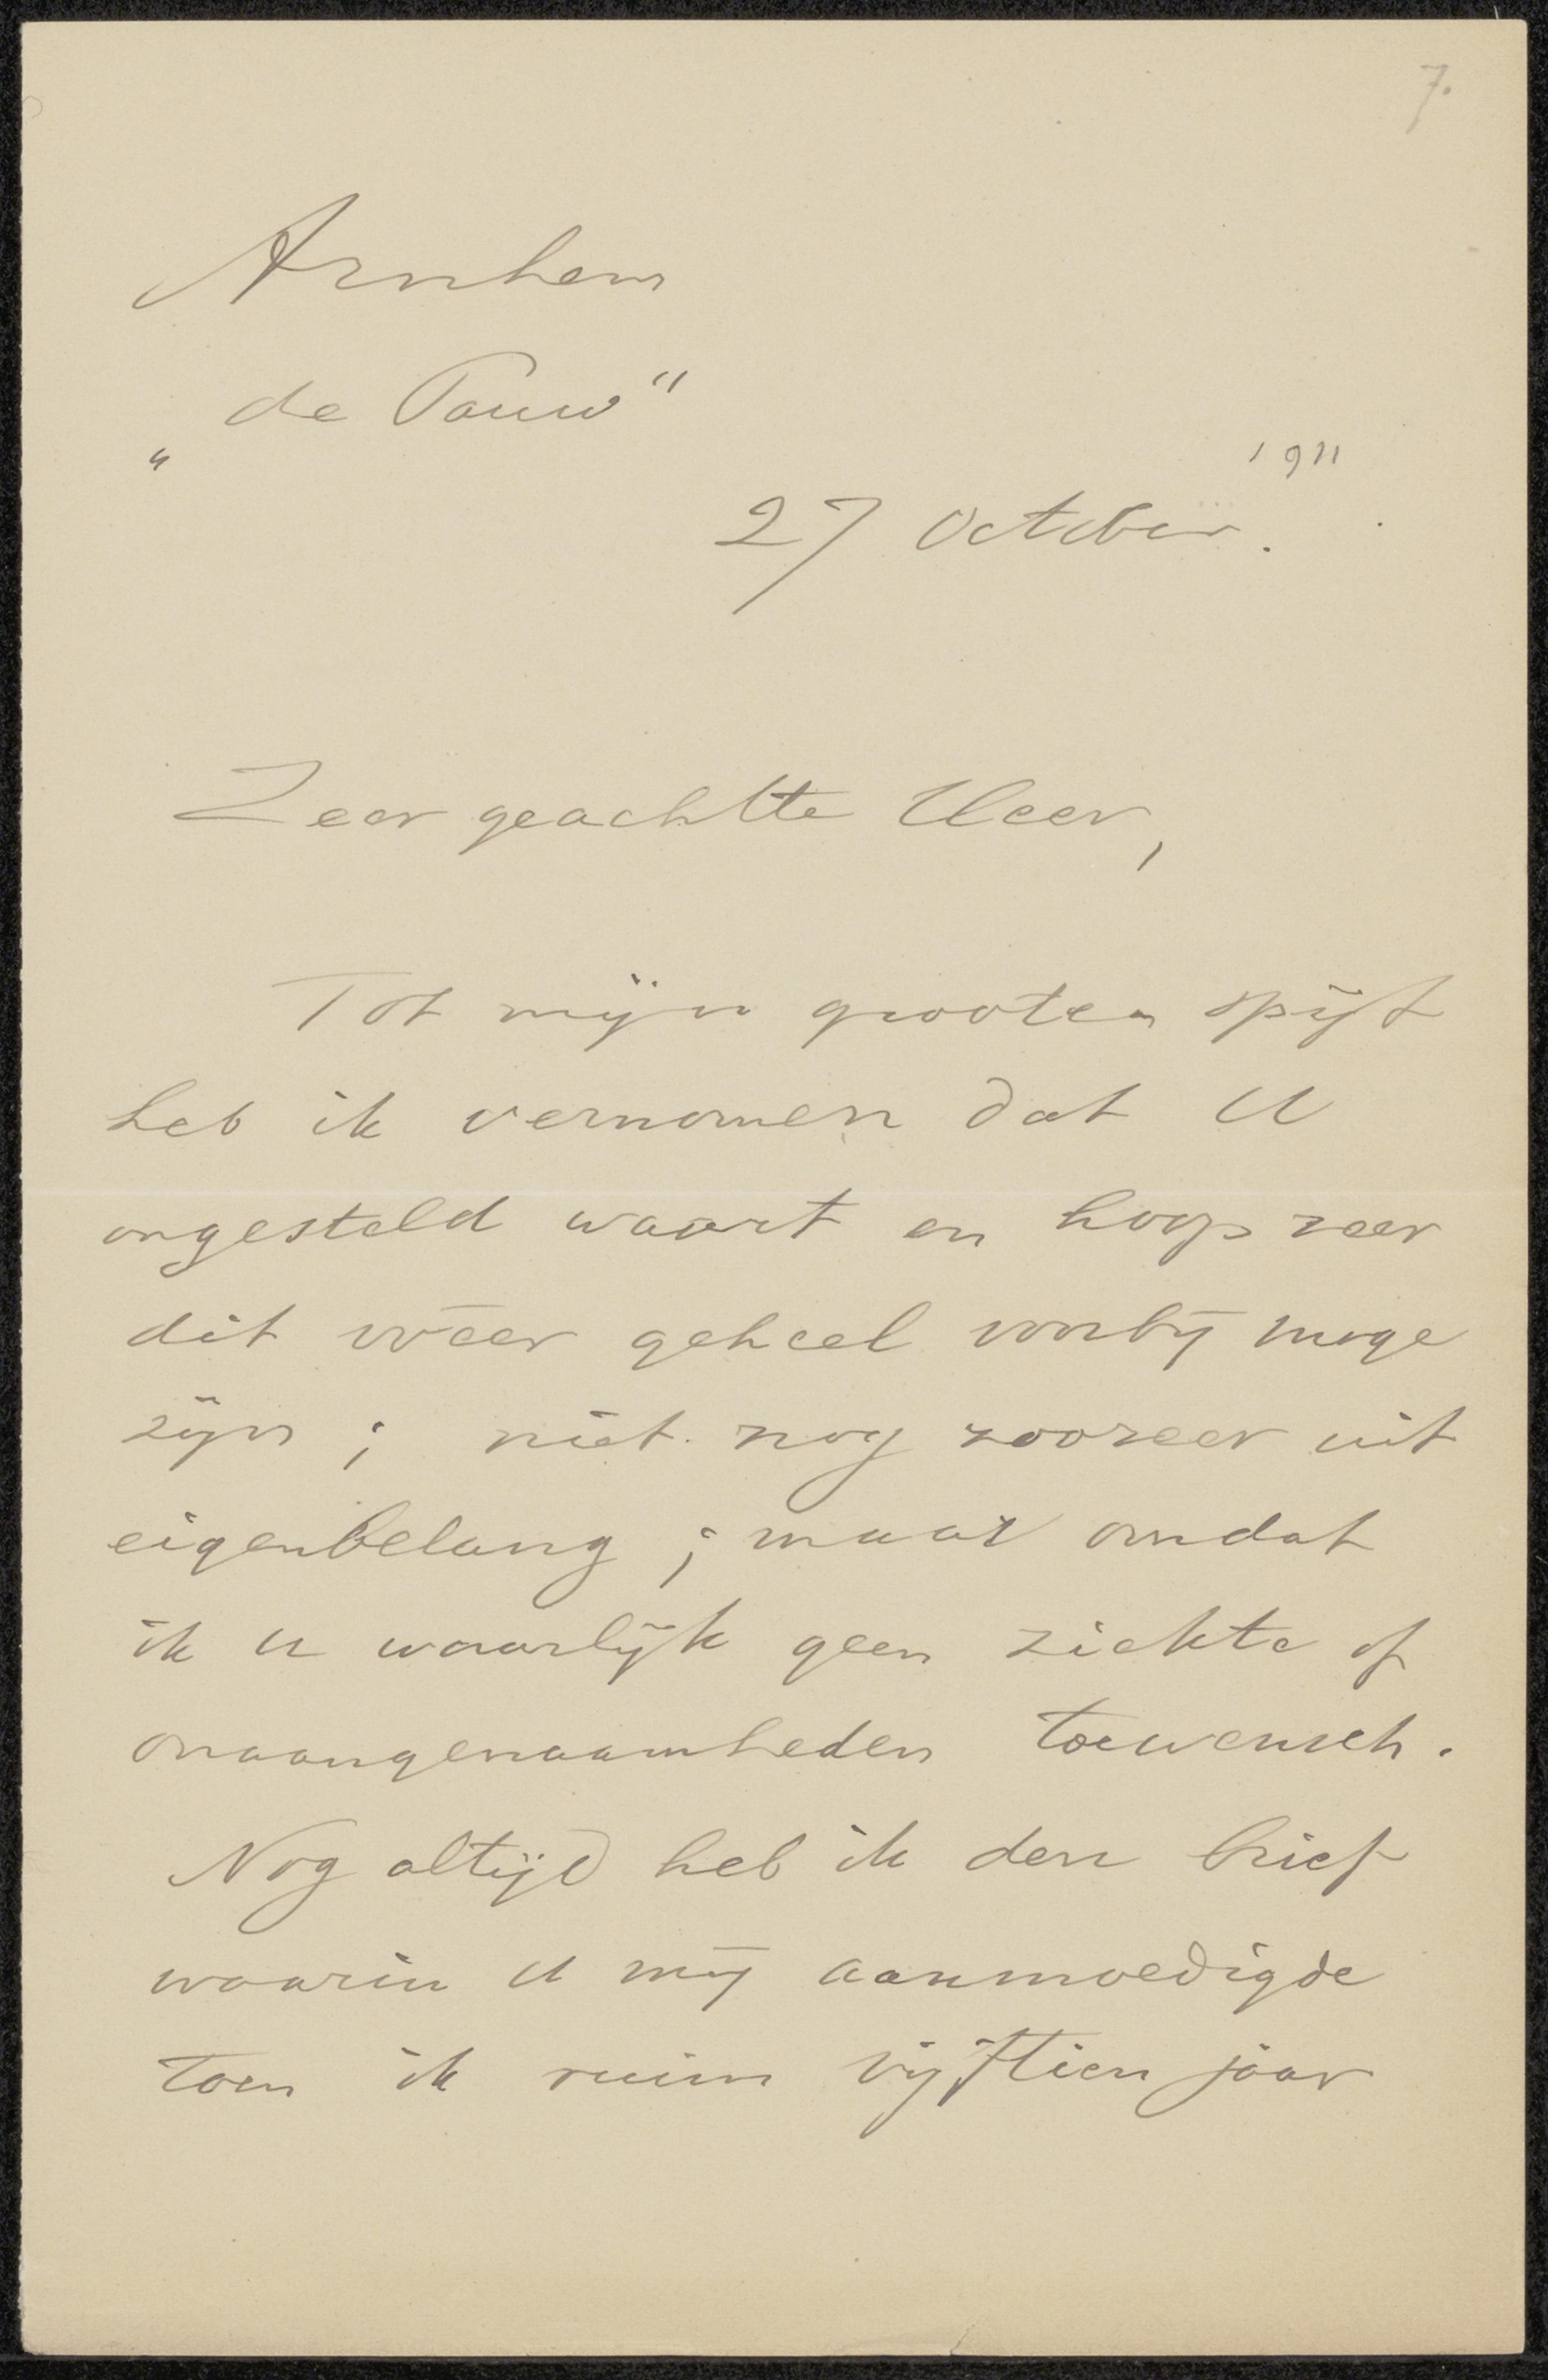 7.
Arnhem
„de Pauw"
1911
27 October.
Zeer geachtte Heer,
Tot mijn grooten spijt
heb ik vernomen dat U
ongesteld waart en hoop zeer
dit weer geheel voorbij moge
zijn; niet nog zoozeer uit
eigenbelang; maar omdat
ik U waarlijk geen ziekte of
onaangenaamheden toewensch.
Nog altijd heb ik den brief
waarin U mij aanmoedigde
toen ik ruim vijftien jaar